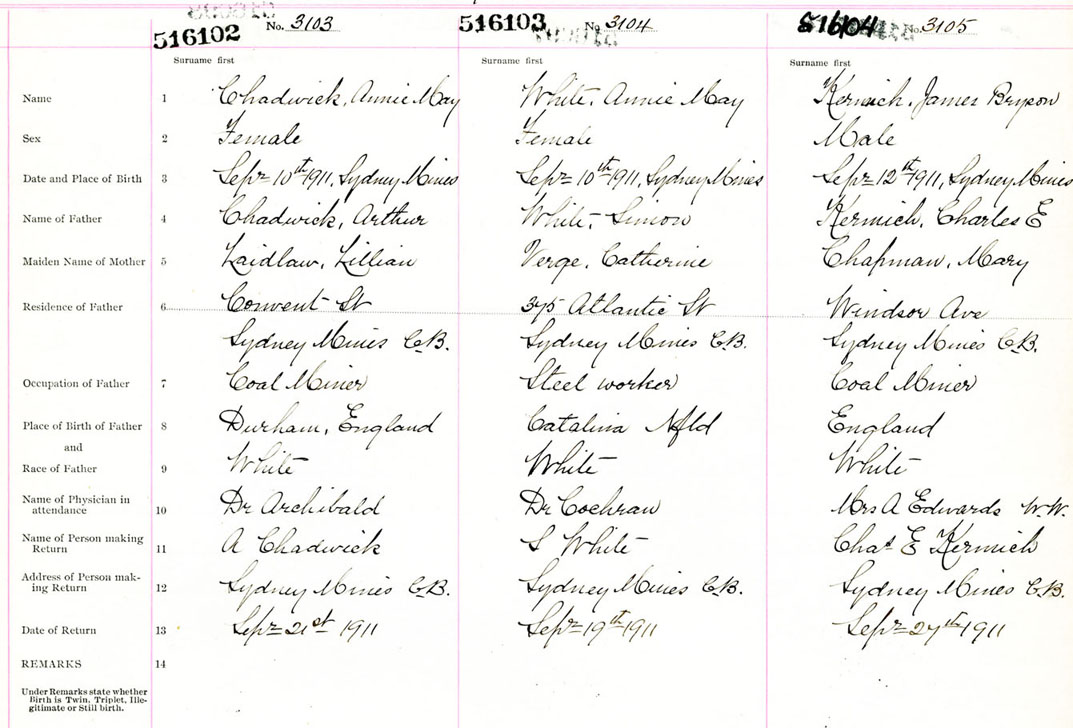 516102 No. 3103 516103 No. 3104 516104 No. 3105
Surname first Surname first Surname first
Name 1 Chadwick, Annie May White, Annie May Kermich, James Bryson
Sex 2 Female Female Male
Date and Place of Birth 3 Sepr 10th 1911, Sydney Mines Sepr 10th 1911, Sydney Mines Sepr 12th 1911, Sydney Mines
Name of Father 4 Chadwick, Arthur White, Simon Kermich, Charles E
Maiden Name of Mother 5 Laidlaw, Lillian Verge, Catherine Chapman, Mary
Residence of Father 6 Convent St 375 Atlantic St Windsor Ave
Sydney Mines C.B. Sydney Mines C.B. Sydney Mines C.B.
Occupation of Father 7 Coal Miner Steel worker Coal Miner
Place of Birth of Father 8 Durham, England Catalina Nfld England
and
Race of Father 9 White White White
Name of Physician in
attendance 10 Dr Archibald Dr Cochran Mrs A Edwards W.W.
Name of Person making
Return 11 A Chadwick S White Chas E Kermich
Address of Person mak-
ing Return 12 Sydney Mines C.B. Sydney Mines C.B. Sydney Mines C.B.
Date of Return 13 Sepr 21st 1911 Sepr 19th 1911 Sepr 27th 1911
REMARKS 14
Under Remarks state whether
Birth is Twin, Triplet, Ille-
gitimate or Still birth.